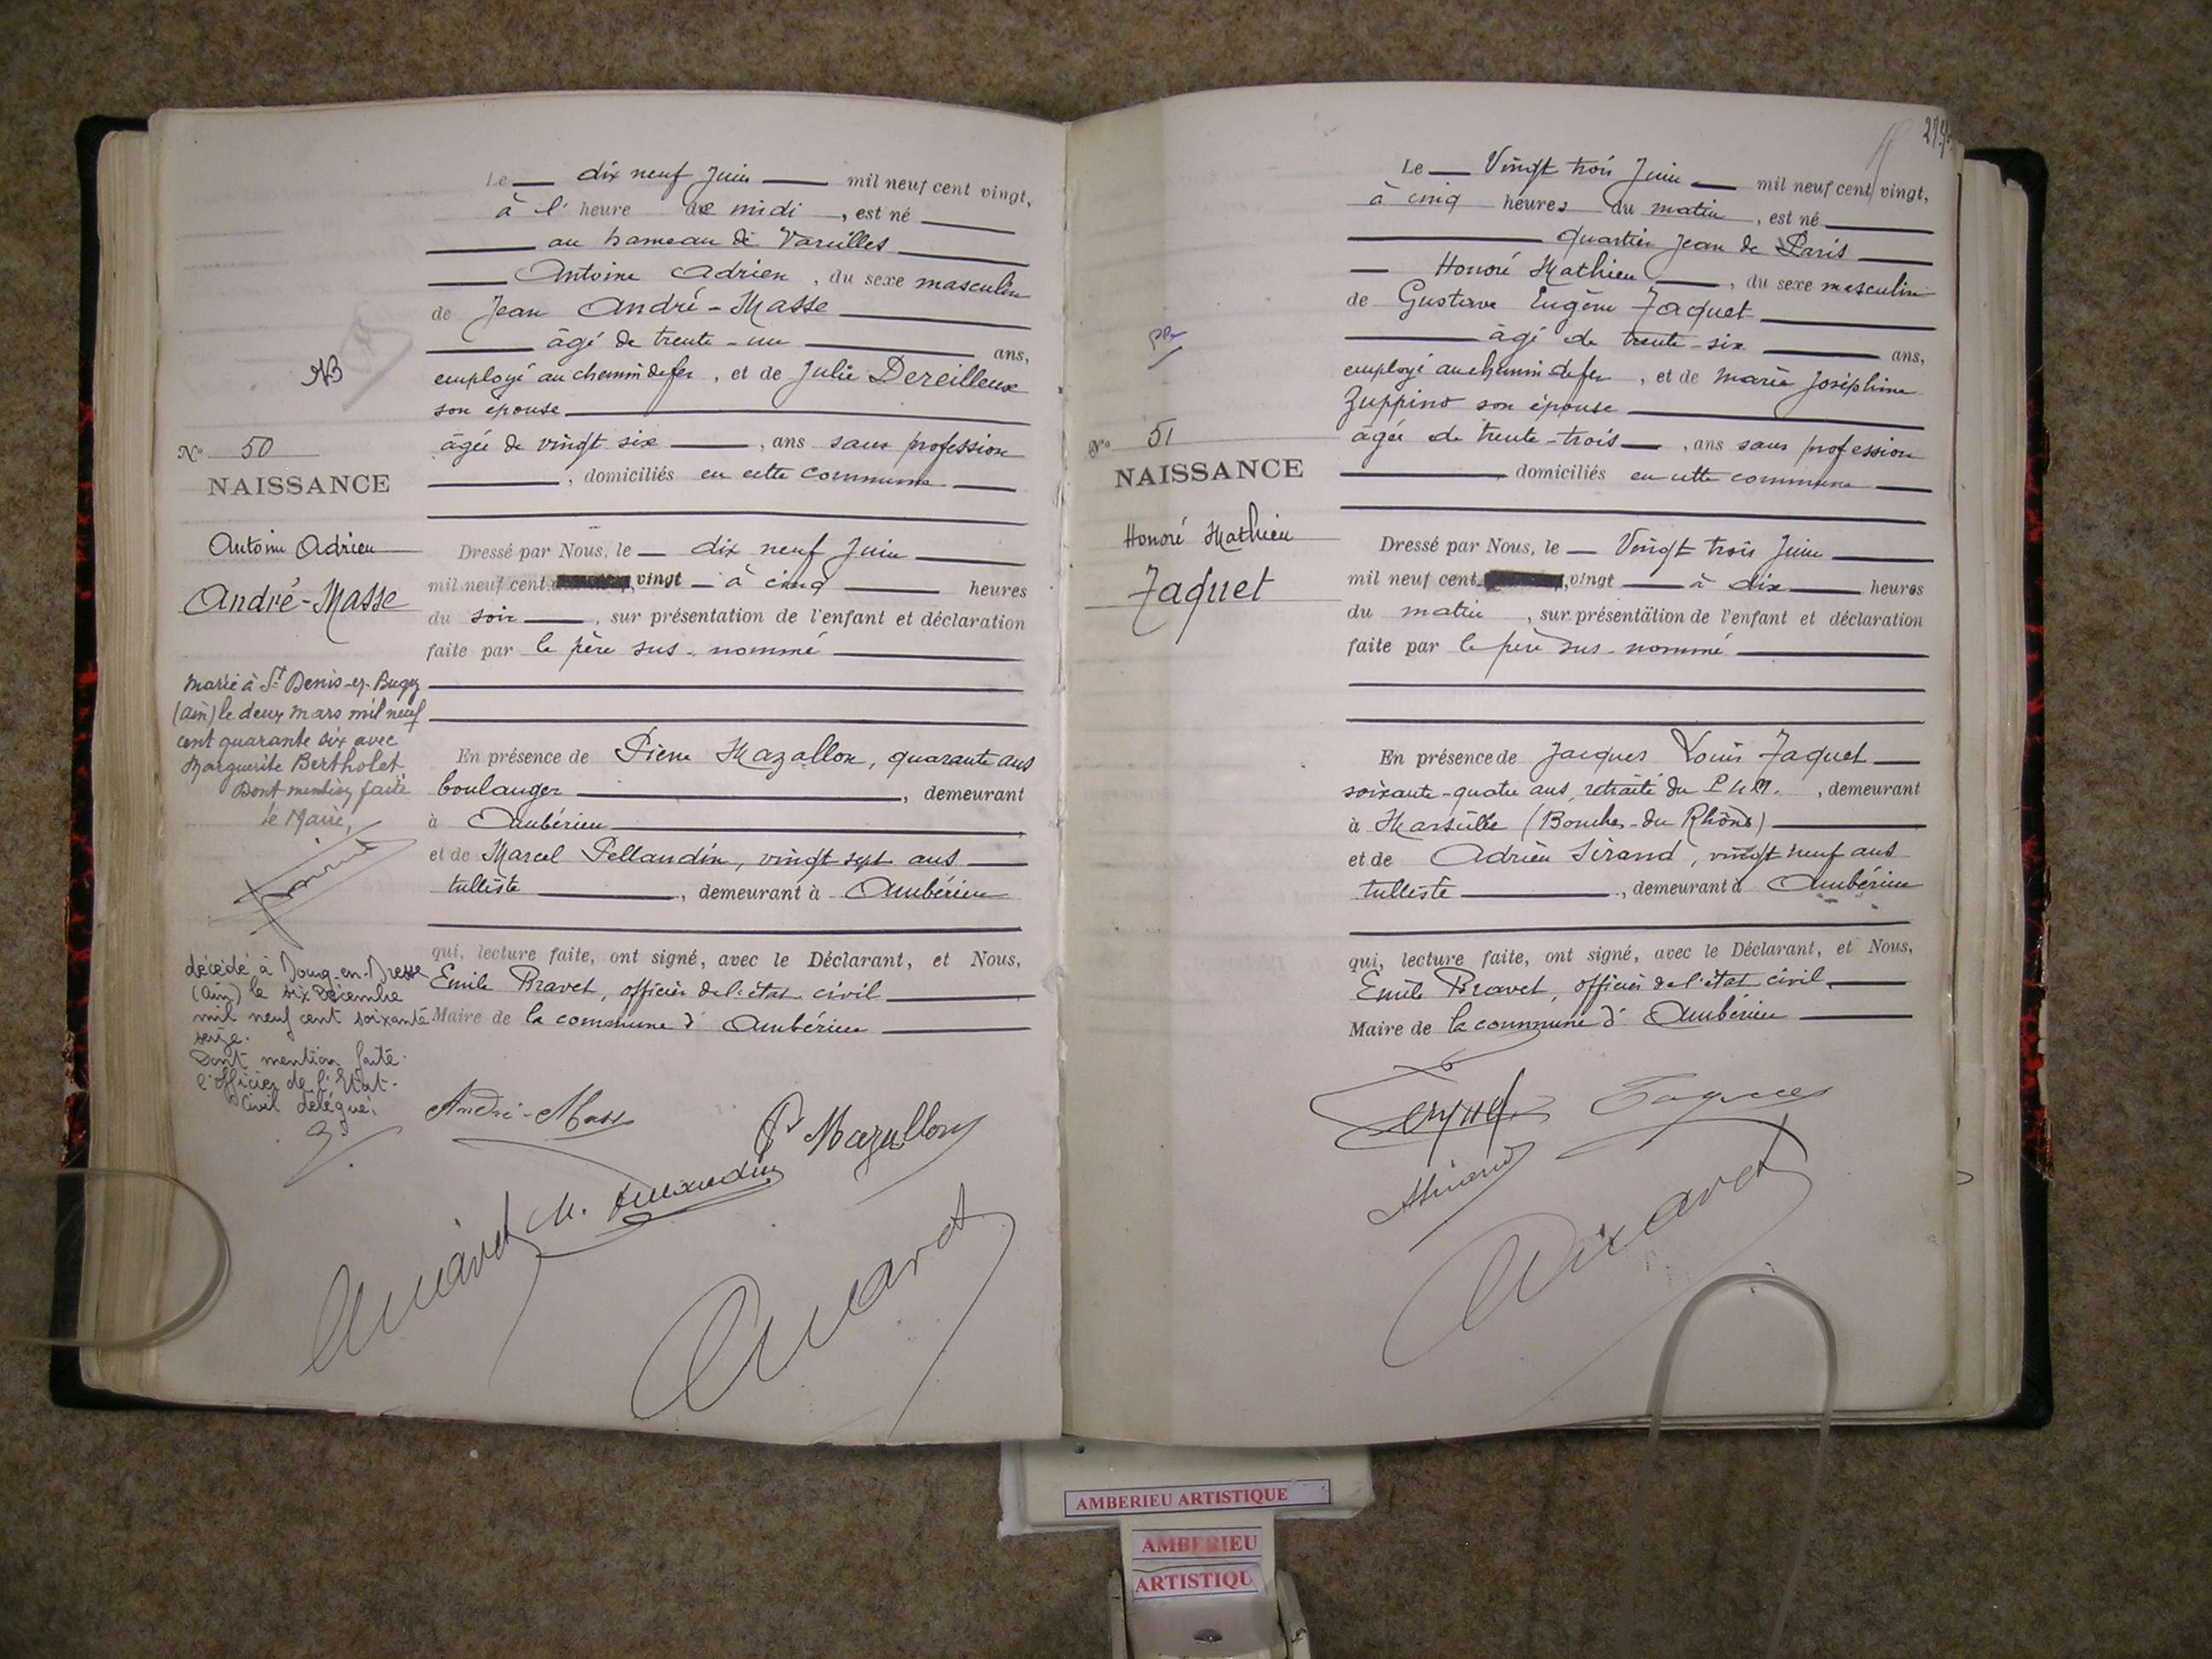 Le dix neuf Juin mil neuf cent vingt,
à l' heure de midi, est né
au hameau de Vareilles
Antoine Adrien, du sexe masculin
de Jean André-Masse
âgé de trente-un ans,
employé au chemin de fer, et de Julie Dereilleux
son épouse
âgée de vingt six, ans sans profession
, domiciliés en cette commune
NB
N° 50
NAISSANCE
Antoine Adrien
André-Masse
Dressé par Nous, le dix neuf Juin
mil neuf cent vingt à cinq heures
du soir, sur présentation de l'enfant et déclaration
faite par le père sus-nommé
marié à St Denis-en-Bugey
(ain) le deux mars mil neuf
cent quarante six avec
Marguerite Bertholet
Dont mention faite
le Maire,
En présence de Pierre Mazallon, quarante ans
boulanger, demeurant
à Ambérieu
et de Marcel Pellaudin, vingt sept ans
tulliste, demeurant à Ambérieu
qui, lecture faite, ont signé, avec le Déclarant, et Nous,
Emile Bravet, officier de l'état civil
Maire de la commune d' Ambérieu
décédé à Bourg-en-Bresse
(ain) le six Décembre
mil neuf cent soixante
seize.
Dont mention faite.
l'officier de l'Etat-
Civil délégué.
André-Masse
P Mazallon
274
Le Vingt trois Juin mil neuf cent vingt,
à cinq heures du matin, est né
quartier Jean de Paris
Honoré Mathieu, du sexe masculin
de Gustave Eugène Jaquet
âgé de trente-six ans,
employé au chemin de fer, et de Marie Joséphine
Zuppino son épouse
âgée de trente-trois, ans sans profession
domiciliés en cette commune
N° 51
NAISSANCE
Honoré Mathieu
Jaquet
Dressé par Nous, le Vingt trois Juin
mil neuf cent, vingt à dix heures
du matin, sur présentation de l'enfant et déclaration
faite par le père sus-nommé
En présence de Jacques Louis Jaquet
soixante-quatre ans, retraité du P.L.M., demeurant
à Marseille (Bouches-du-Rhône)
et de Adrien Sirand, vingt neuf ans
tulliste, demeurant à Ambérieu
qui, lecture faite, ont signé, avec le Déclarant, et Nous,
Emile Bravet, officier de l'état civil
Maire de la commune d' Ambérieu
AMBERIEU ARTISTIQUE
AMBERIEU
ARTISTIQU